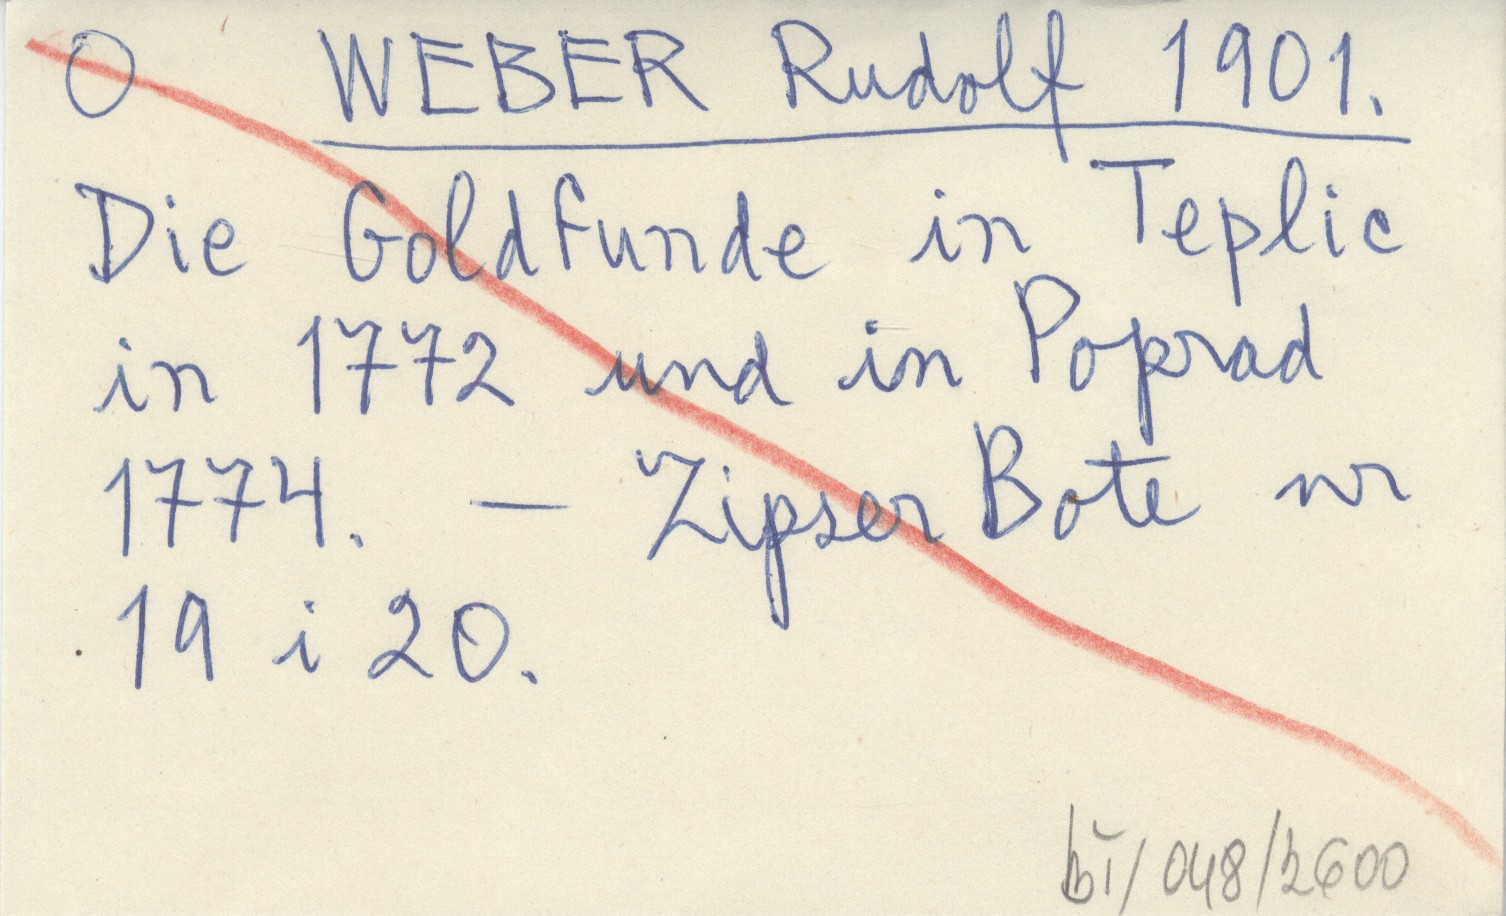 O WEBER Rudolf 1901.
Die Goldfunde in Teplic
in 1772 und in Poprad
1774. — Zipser Bote nr
19 i 20.
bī/048/2600